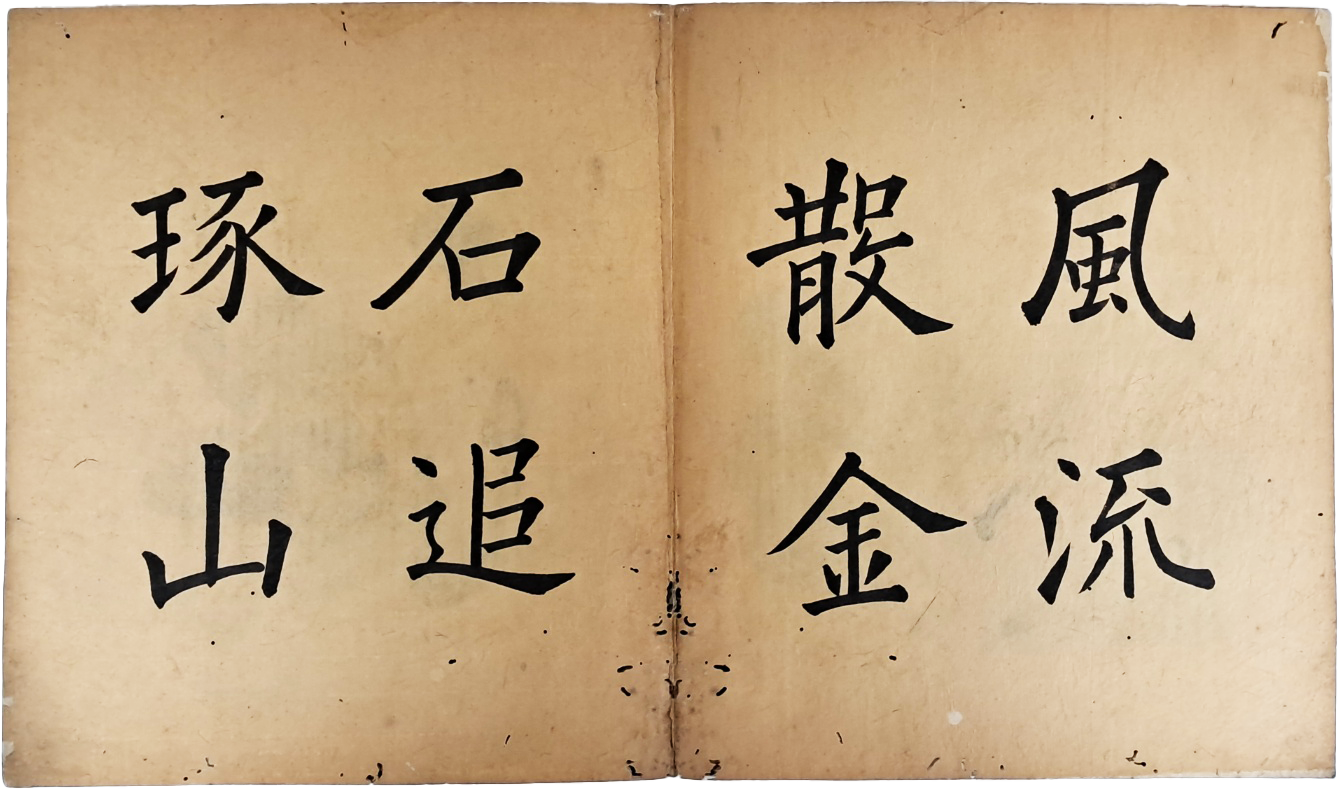 風流
散金
石追
琢山